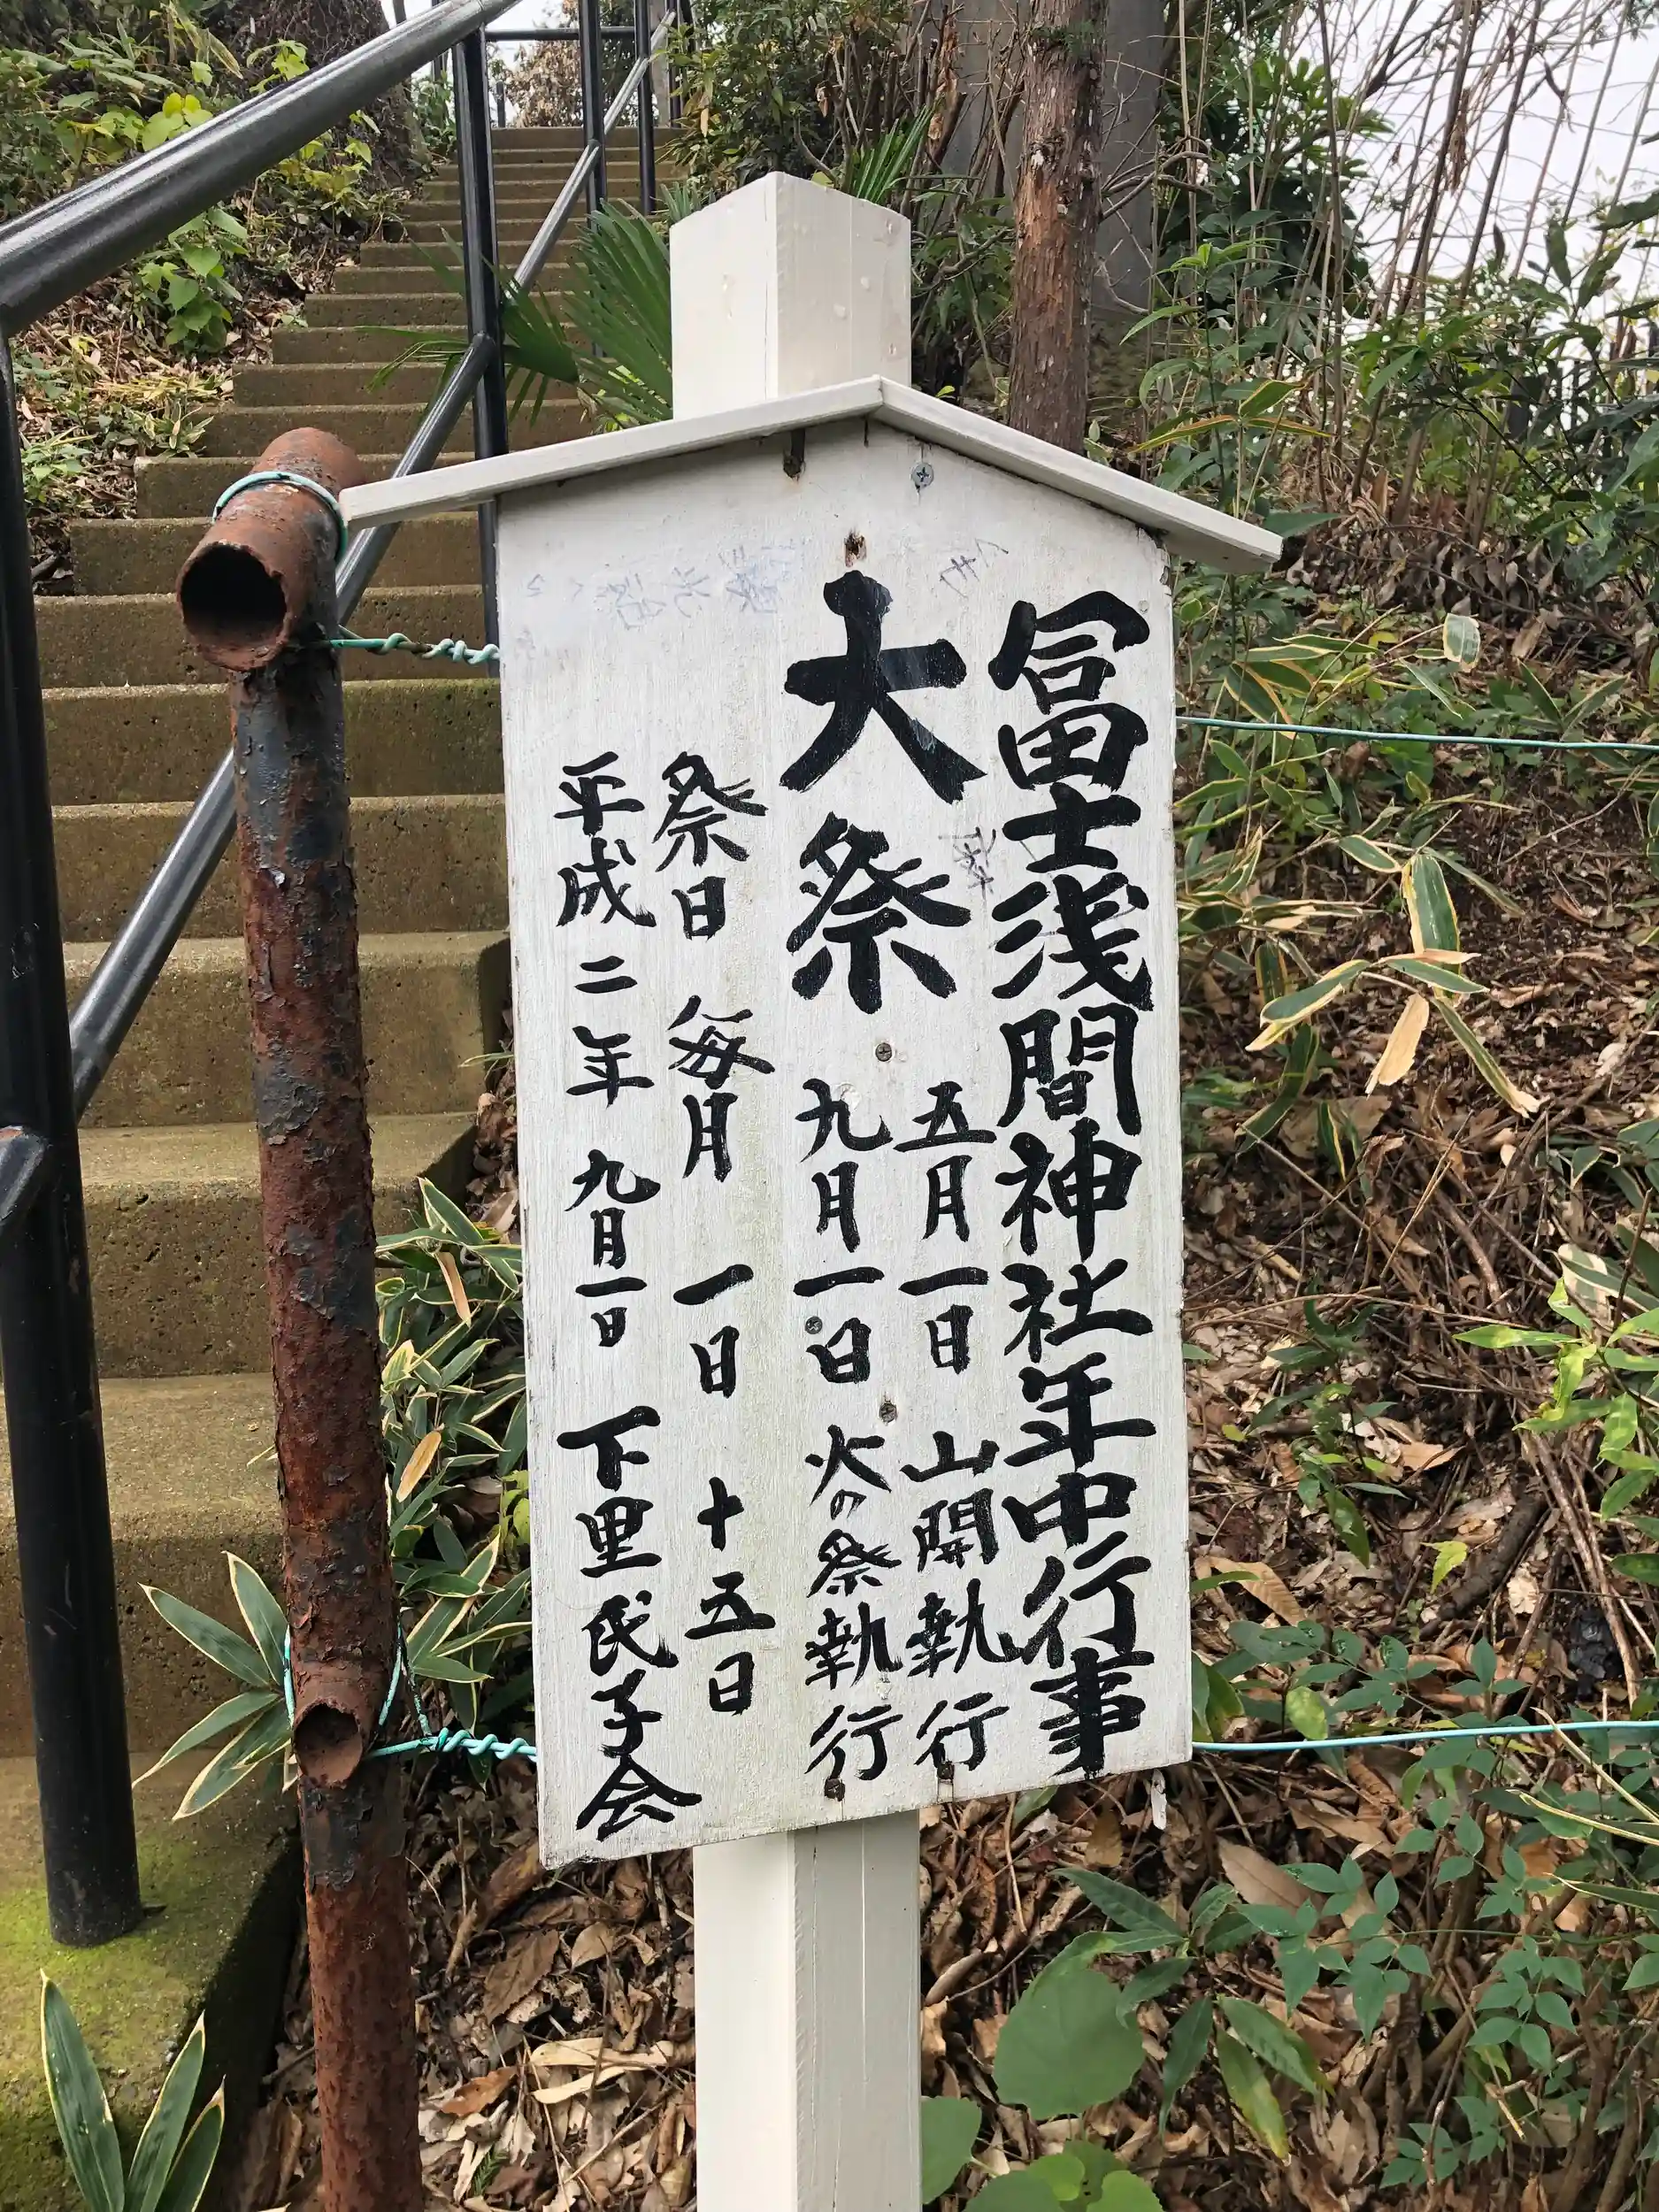 冨士浅間神社年中行事
大祭
五月一日 山開執行
九月一日 火の祭執行
祭日 毎月 一日 十五日
平成二年 九月一日 下里氏子会